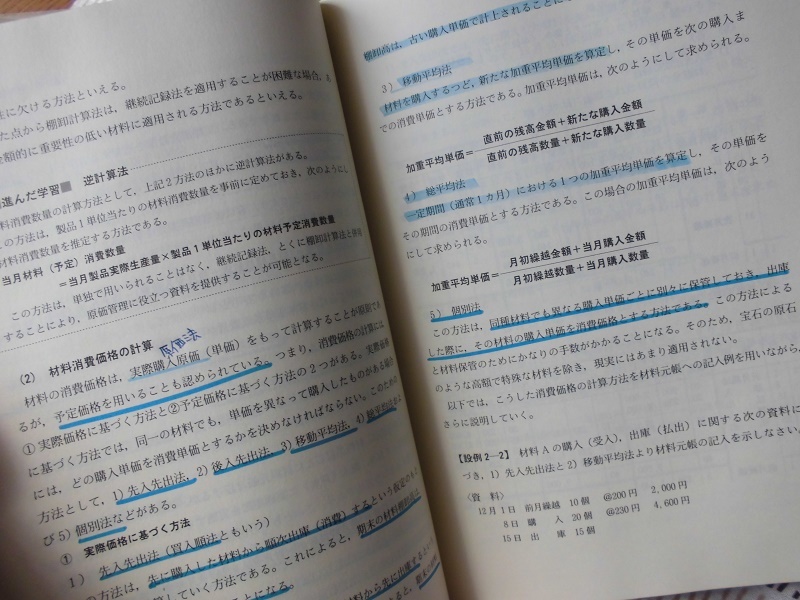 法に欠ける方法といえる。
た点から棚卸計算法は，継続記録法を適用することが困難な場合，
金額的に重要性の低い材料に適用される方法であるといえる。
進んだ学習■ 逆計算法
料消費数量の計算方法として，上記2方法のほかに逆計算法がある。
の方法は，製品1単位当たりの材料消費数量を事前に定めておき，次のようにし
材料消費数量を推定する方法である。
当月材料（予定）消費数量
＝当月製品実際生産量×製品1単位当たりの材料予定消費数量
この方法は，単独で用いられることはなく，継続記録法，とくに棚卸計算法と併用
することにより，原価管理に役立つ資料を提供することが可能となる。
原価法
(2) 材料消費価格の計算
材料の消費価格は，実際購入原価（単価）をもって計算することが原則であ
るが，予定価格を用いることも認められている。つまり，消費価格の計算には
①実際価格に基づく方法と②予定価格に基づく方法の2つがある。実際価格
に基づく方法では，同一の材料でも，単価を異なって購入したものがある場合
には，どの購入単価を消費単価とするかを決めなければならない。このための
方法として，1) 先入先出法，2) 後入先出法，3) 移動平均法，4) 総平均法およ
び 5) 個別法などがある。
① 実際価格に基づく方法
1) 先入先出法（買入順法ともいう）
の方法は，先に購入した材料から順次出庫（消費）するという仮定のもと
していく方法である。これによると，期末の材料棚卸高は
になる。
材料から先に出庫すると
棚卸高は，古い購入単価で計上されることに
3) 移動平均法
材料を購入するつど，新たな加重平均単価を算定し，その単価を次の購入ま
での消費単価とする方法である。加重平均単価は，次のようにして求められる。
加重平均単価＝ 直前の残高金額＋新たな購入金額
直前の残高数量＋新たな購入数量
4) 総平均法
一定期間（通常1カ月）における1つの加重平均単価を算定し，その単価を
その期間の消費単価とする方法である。この場合の加重平均単価は，次のよう
にして求められる。
加重平均単価＝ 月初繰越金額＋当月購入金額
月初繰越数量＋当月購入数量
5) 個別法
この方法は，同種材料でも異なる購入単価ごとに別々に保管しておき，出庫
した際に，その材料の購入単価を消費価格とする方法である。この方法による
と材料保管のためにかなりの手数がかかることになる。そのため，宝石の原石
のような高額で特殊な材料を除き，現実にはあまり適用されない。
以下では，こうした消費価格の計算方法を材料元帳への記入例を用いながら，
さらに説明していく。
【設例2－2】 材料Aの購入（受入），出庫（払出）に関する次の資料に
づき，1) 先入先出法と 2) 移動平均法より材料元帳の記入を示しなさい。
〈資 料〉
12月1日 前月繰越 10個 @200円 2,000円
8日 購 入 20個 @230円 4,600円
15日 出 庫 15個